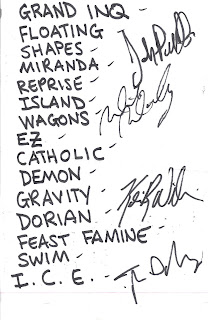 GRAND INQ -
FLOATING -
SHAPES -
MIRANDA -
REPRISE -
ISLAND -
WAGONS -
EZ -
CATHOLIC -
DEMON -
GRAVITY -
DORIAN -
FEAST FAMINE -
SWIM -
I.C.E. -